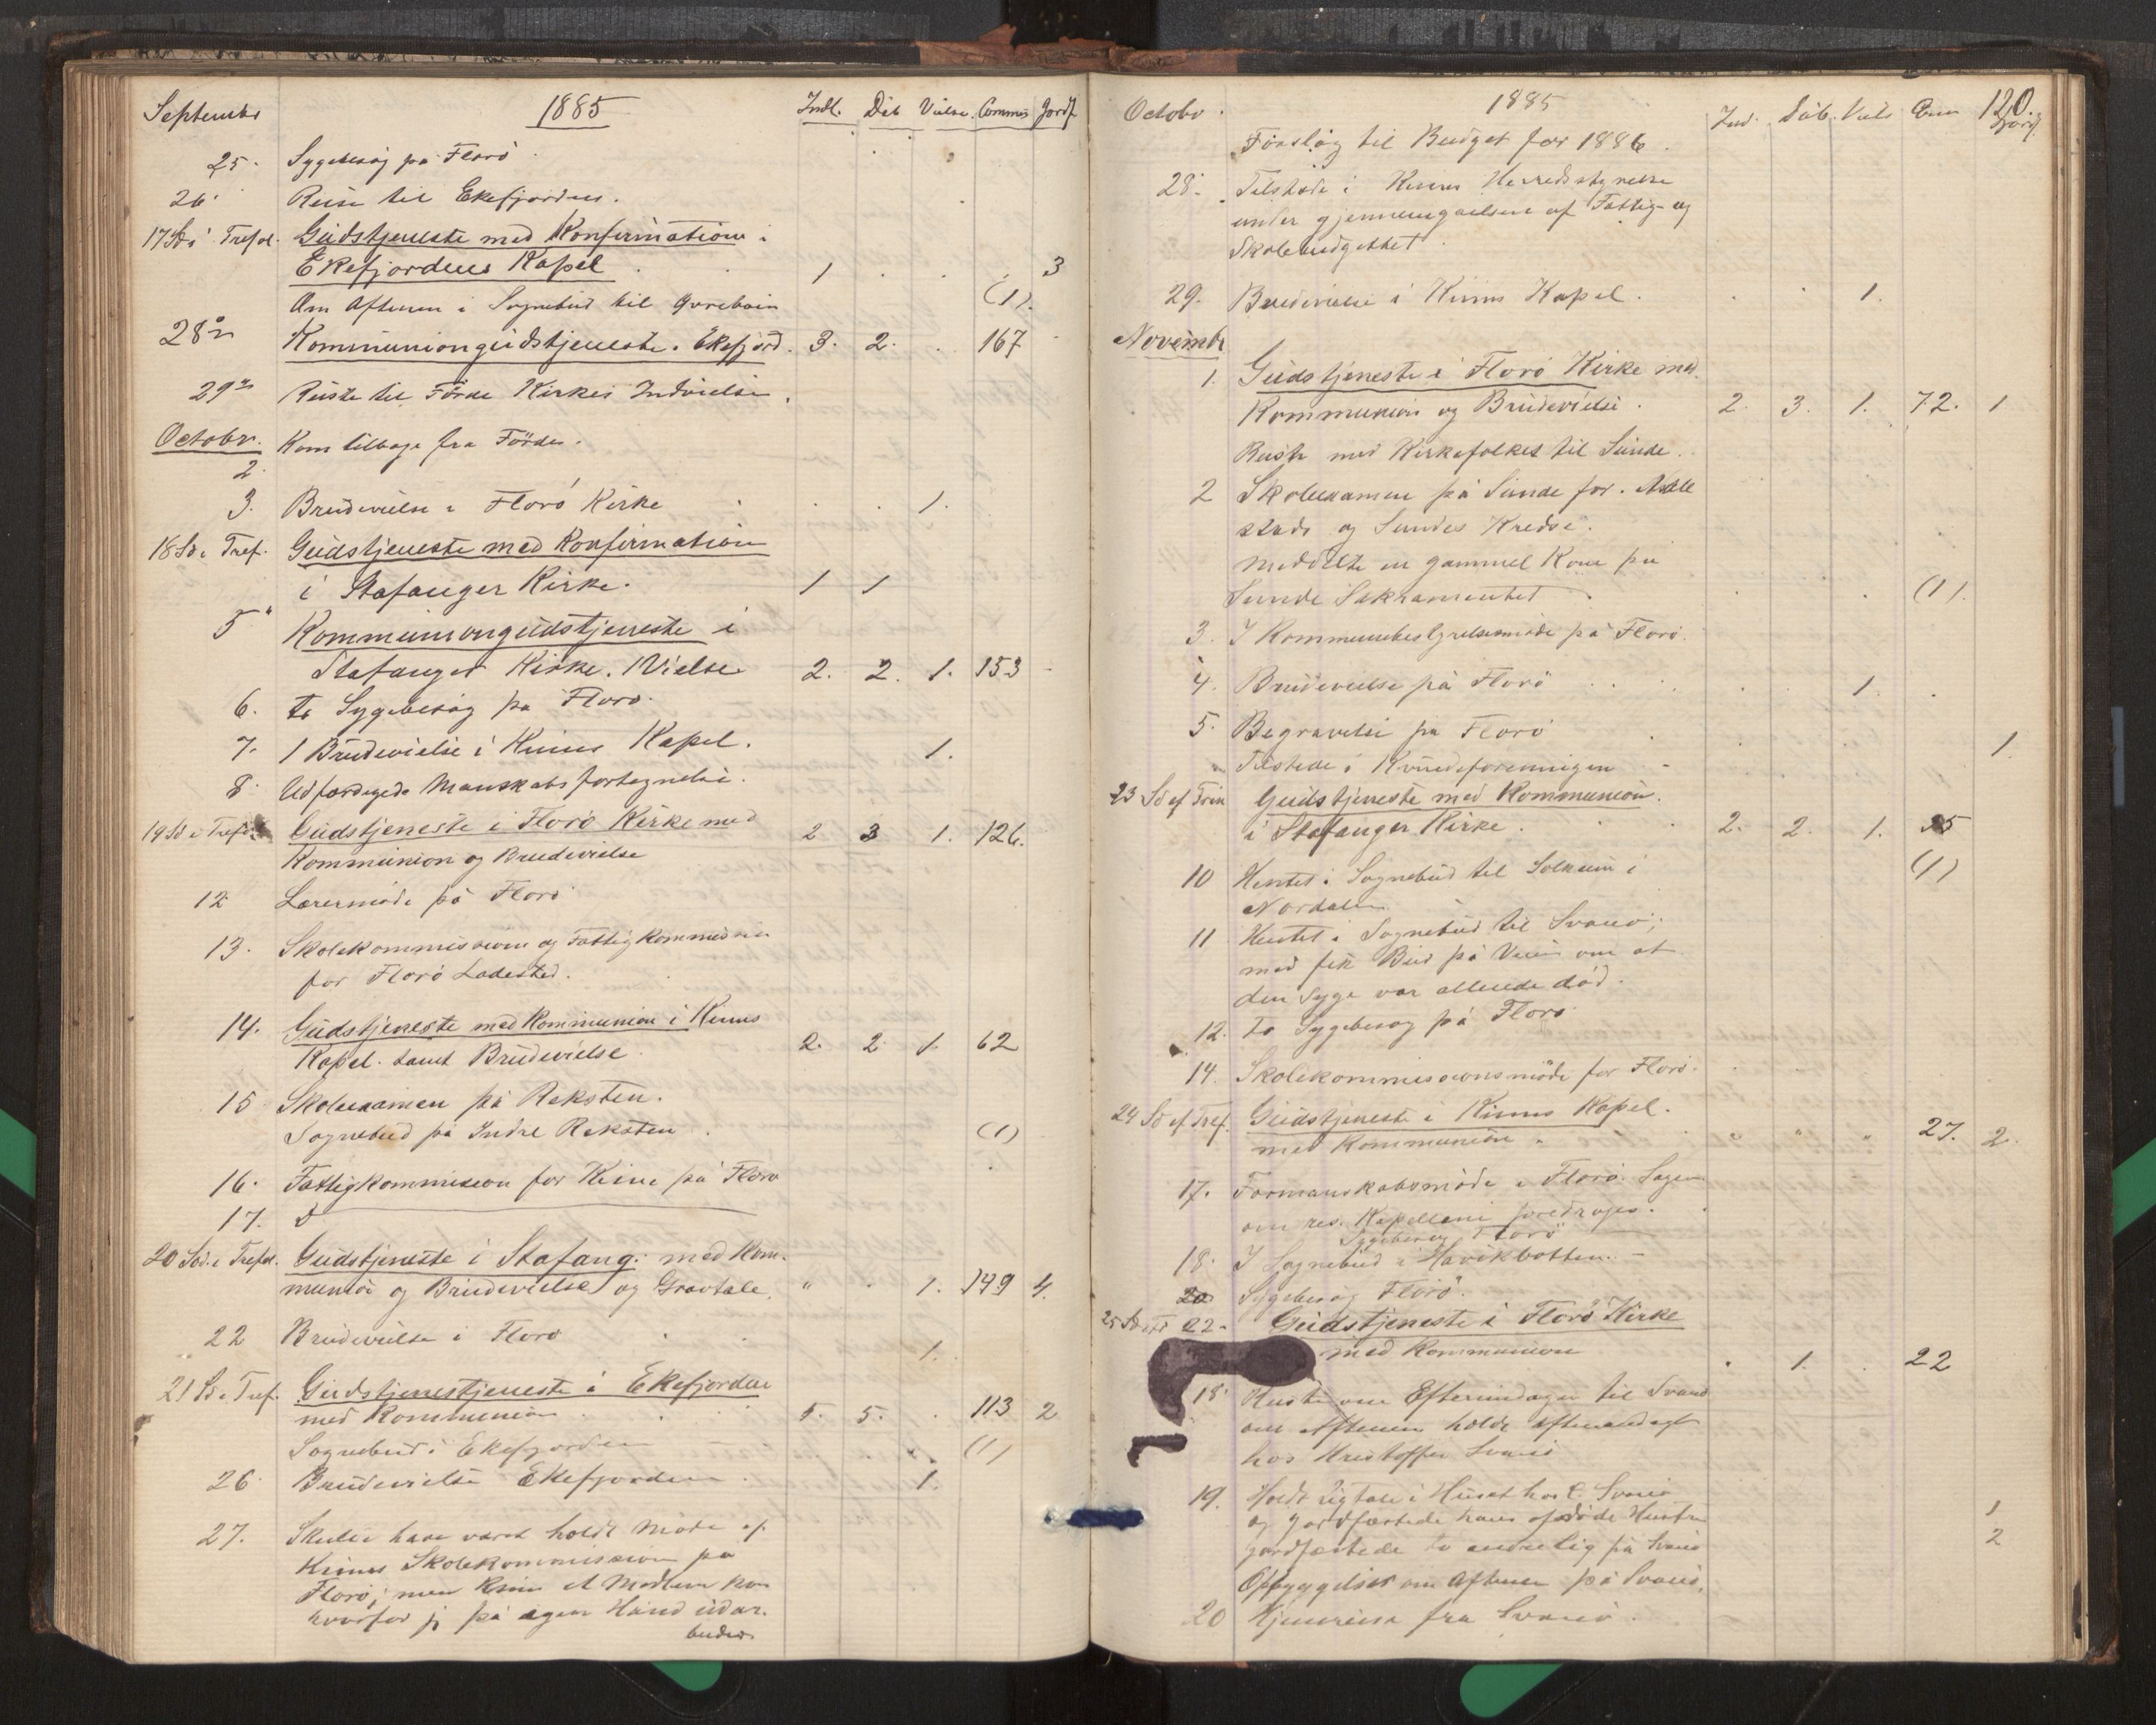 Septembr 1885 Indl. Dåb Vielse. Commu Jordf.
25. Sygebesøg på Florö
26. Reise til Ekefjorden.
17 Sd. i Trefol. Gudstjeneste med Konfirmation i
Ekefjordens Kapel 1 3
Om Aftenen i Sognebud til (1).
28de Kommuniongudstjeneste. Ekefjord. 3. 2. 167
29de Reiste til Förde Kirkes Indvielse.
Octobr. Kom tilbage fra Förde.
2
3. Brudevielse i Florö Kirke 1.
18 Sd. i Tref. Gudstjeneste med Konfirmation
i Stafanger Kirke. 1 1
5 Kommuniongudstjeneste i
Stafanger Kirke. 1 Vielse 2. 2. 1. 153
6. to Sygebesøg på Florö.
7. 1 Brudevielse i Kinns Kapel. 1.
8. Udfærdigede Manskabsfortegnelse.
19 Sd. i Tref. Gudstjeneste i Florö Kirke med 2 3 1. 126.
Kommunion og Brudevielse
12 Lærermöde på Florö
13. Skolekommission og Fattigkommission
for Florö Ladested.
14. Gudstjeneste med Kommunion i Kinns
Kapel. samt Brudevielse. 2. 2. 1. 62
15 Skoleexamen på Reksten.
Sognebud på Indre Reksten (1)
16. Fattigkommission for Kinn på Florö
17. D
20 Sd. i Trefol. Gudstjeneste i Stafang. med Kom-
munion og Brudevielse og Gravtale. " . 1. 149 4.
22 Brudevielse i Florö 1.
21 Sd. i Tref. Gudstjenestjeneste i Ekefjorden
med Kommunion 5. 5. . 113 2
Sognebud i Ekefjorden (1)
26. Brudevielse Ekefjorden. 1.
27. Skulde have været holdt Möde af
Kinns Skolekommission på
Florö; men Medlem kom
hvorfor jeg på egen Hånd udar-
beider
Octobr. 1885 Ind. Dåb. Viels Com Jordf 120.
Forslag til Budget for 1886.
28. Tilstede i Kinns Herredsstyrelse
under gjennemgåelsen af Fattig- og
Skolebudgettet.
29. Brudevielse i Kinns Kapel. 1.
Novembr
1. Gudstjeneste i Florö Kirke med
Kommunion og Brudevielse. 2. 3. 1. 72. 1
Reiste med Kirkefolket til Sunde.
2 Skoleexamen på Sunde for
stads og Sundes Kredse.
meddelte en gammel Kone på
Sunde Sakramentet (1).
3. I Kommunebestyrelsesmöde på Florö.
4. Brudevielse på Florö 1.
5. Begravelse på Florö 1.
" Tilstede i Kvindeforeningen
23 Sd ef Trin Gudstjeneste med Kommunion.
i Stafanger Kirke. 2. 2. 1. 35
10 Hentet i Sognebud til Solheim i (1)
Nordalen
11 Hentet i Sognebud til Svanö;
med fik Bud på Veien om at
den Syge var allerede död.
12. to Sygebesøg på Florö
14. Skolekommissionsmöde for Florö.
24 Sd ef Tref. Gudstjeneste i Kinns Kapel.
med Kommunion. " " " 27. 2.
17. Formanskabsmöde i Florö. Sagen
om res. Kapellani foredrages.
Sygebesøg Florö
18. I Sognebud i Havikbotten.
20 Sygebesøg Florö.
25 Sd 22. Gudstjeneste i Florö Kirke
med Kommunion . 1. . 22
18. Reiste om Eftermidagen til Svanö
om Aftenen holdt Aftenandagt
hos Kristoffer Svanö
19. Holdt Ligtale i Huset hos C. Svanö 1
og jordfæstede hans afdöde Hustru
jordfæstede to andre Lig på Svanö 2
Opbyggelse om Aftenen på Svanö.
20 Hjemreise fra Svanö.